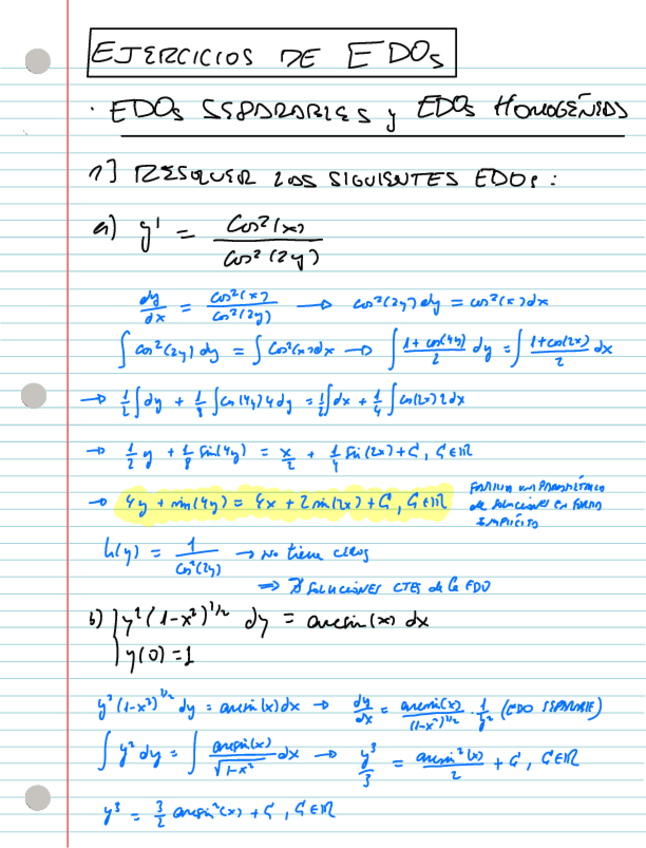 EJERCICIOS DE EDOs
· EDOs SEPARABLES y EDOs HOMOGÉNEAS
1] RESOLVER LOS SIGUIENTES EDOs :
a) y' = cos²(x) / cos²(2y)
dy/dx = cos²(x)/cos²(2y) → cos²(2y) dy = cos²(x) dx
∫ cos²(2y) dy = ∫ cos²(x) dx → ∫ (1 + cos(4y))/2 dy = ∫ (1 + cos(2x))/2 dx
→ 1/2 ∫ dy + 1/8 ∫ cos(4y) 4 dy = 1/2 ∫ dx + 1/4 ∫ cos(2x) 2 dx
→ 1/2 y + 1/8 sin(4y) = x/2 + 1/4 sin(2x) + C, C∈ℝ
→ 4y + sin(4y) = 4x + 2 sin(2x) + C, C∈ℝ
FAMILIA UNIPARAMÉTRICA
de soluciones en FORMA
IMPLÍCITA
h(y) = 1/cos²(2y) → No tiene ceros
⇒ ∄ SOLUCIONES CTES de la EDO
b) { y²(1-x²)^1/2 dy = arcsin(x) dx
y(0) = 1
y²(1-x²)^1/2 dy = arcsin(x) dx → dy/dx = arcsin(x)/(1-x²)^1/2 · 1/y² (EDO SEPARABLE)
∫ y² dy = ∫ arcsin(x)/√(1-x²) dx → y³/3 = arcsin²(x)/2 + C, C∈ℝ
y³ = 3/2 arcsin²(x) + C, C∈ℝ